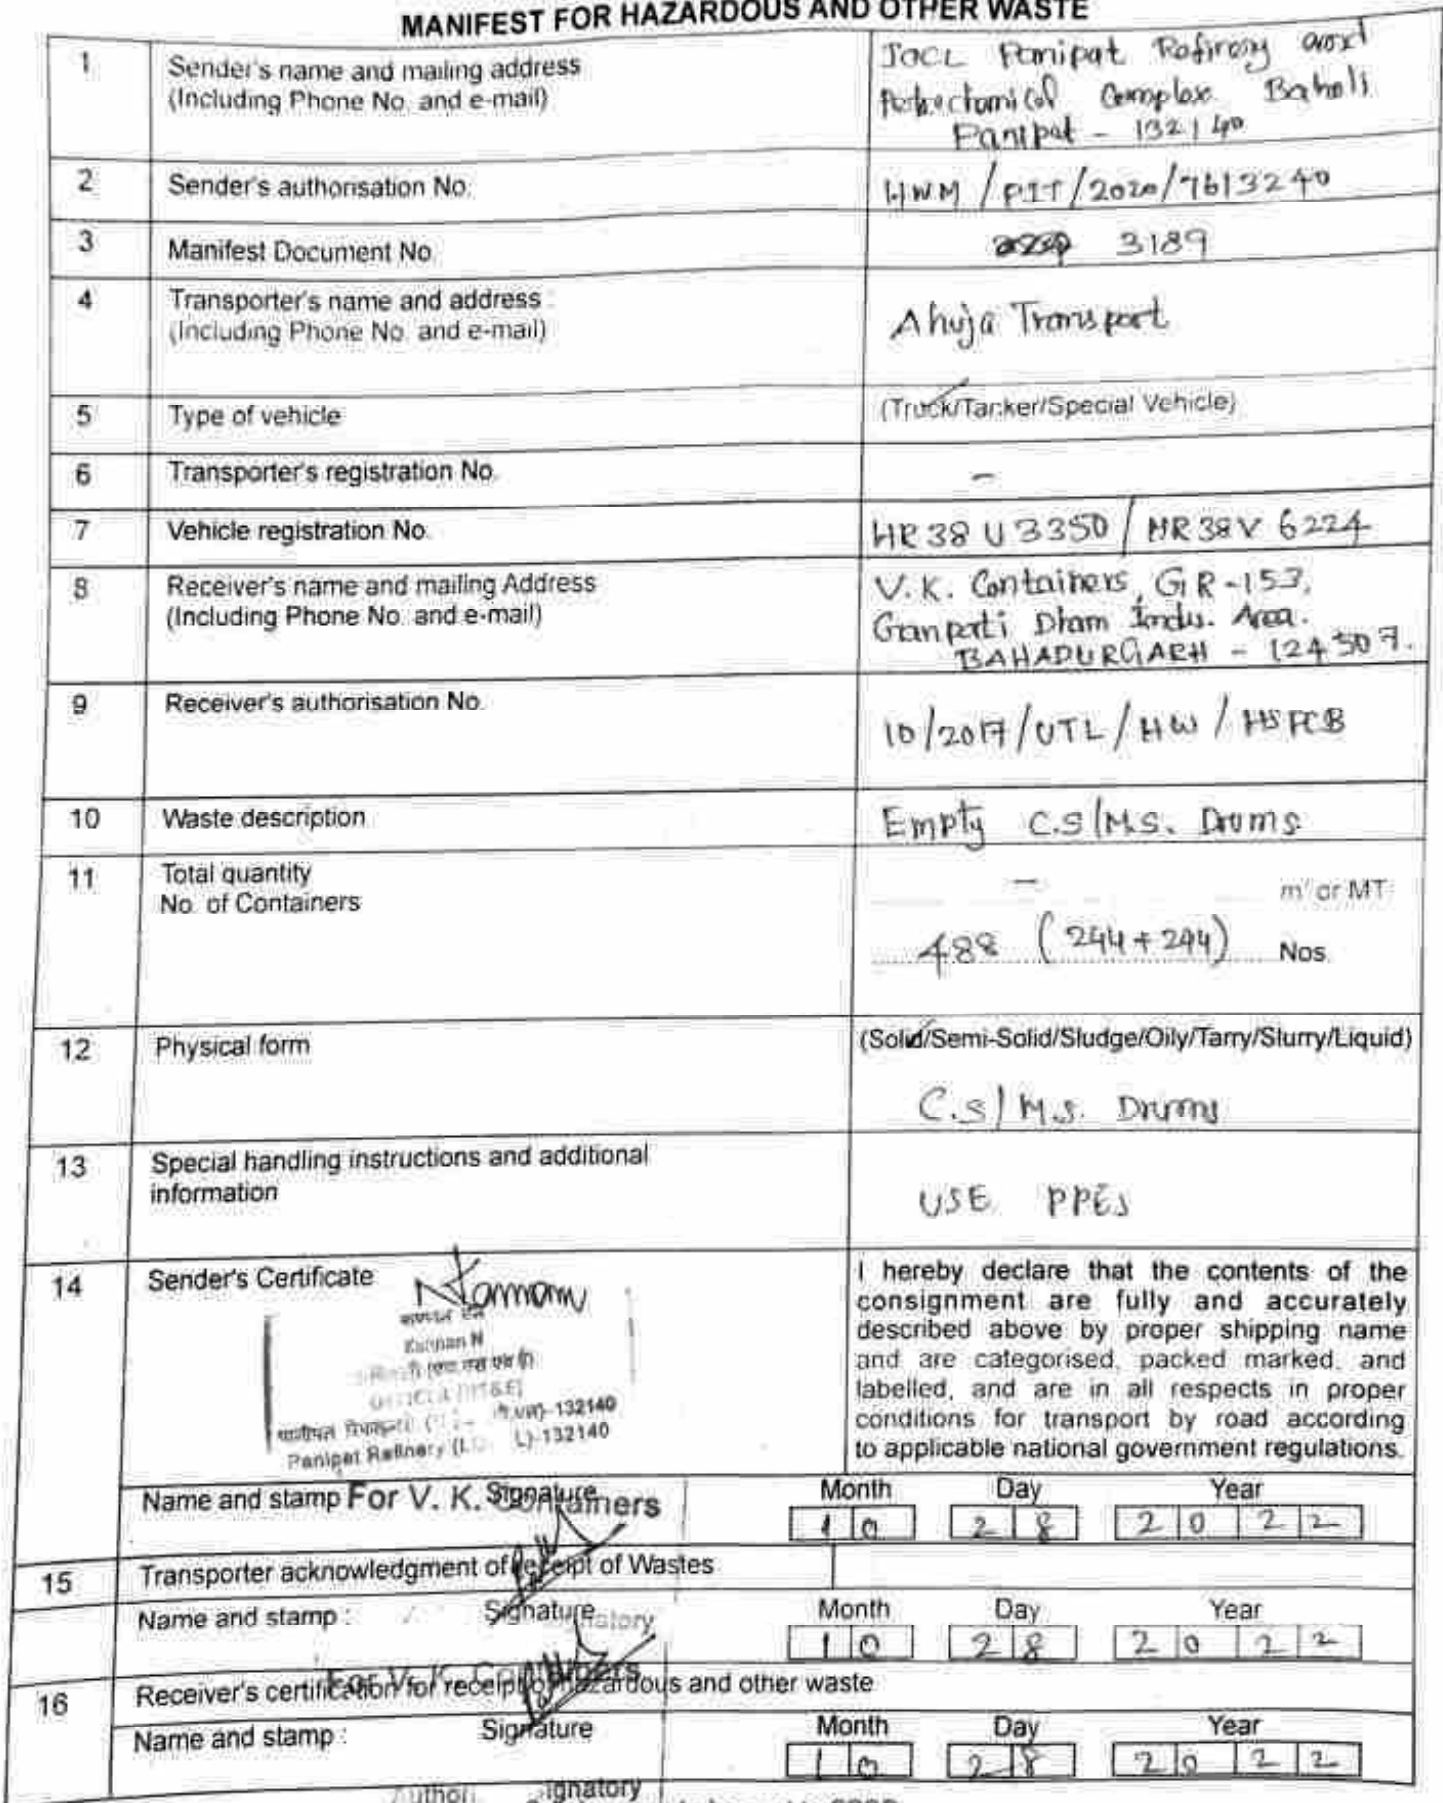 MANIFEST FOR HAZARDOUS AND OTHER WASTE
1 Sender's name and mailing address
(Including Phone No. and e-mail)
IOCL Panipat Refinery and
Petrochemical Complex Baholi
Panipat - 132140
2 Sender's authorisation No. HWM/PIT/2020/7613240
3 Manifest Document No. 3189
4 Transporter's name and address :
(Including Phone No. and e-mail)
Ahuja Transport
5 Type of vehicle (Truck/Tanker/Special Vehicle)
6 Transporter's registration No. -
7 Vehicle registration No. HR 38 U 3350 / HR 38 V 6224
8 Receiver's name and mailing Address
(Including Phone No. and e-mail)
V.K. Containers, GR-153,
Ganpati Dham Indu. Area.
BAHADURGARH - 124507.
9 Receiver's authorisation No. 10/2017/UTL/HW/HSPCB
10 Waste description Empty C.S/M.S. Drums
11 Total quantity - m³ or MT
No. of Containers
488 (244+244) Nos.
12 Physical form (Solid/Semi-Solid/Sludge/Oily/Tarry/Slurry/Liquid)
C.S/M.S. Drums
13 Special handling instructions and additional
information
USE PPEs
14 Sender's Certificate
Kannan N
132140
Panipat Refinery 132140
I hereby declare that the contents of the
consignment are fully and accurately
described above by proper shipping name
and are categorised, packed marked, and
labelled, and are in all respects in proper
conditions for transport by road according
to applicable national government regulations.
Name and stamp For V. K. Containers Signature Month Day Year
10 28 2022
15 Transporter acknowledgment of receipt of Wastes
Name and stamp : Signature Month Day Year
10 28 2022
For V. K. Containers
16 Receiver's certification for receipt of hazardous and other waste
Name and stamp : Signature Month Day Year
10 28 2022
Signatory